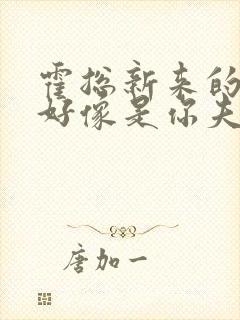 霍总新来的
好像是你夫
唐加一